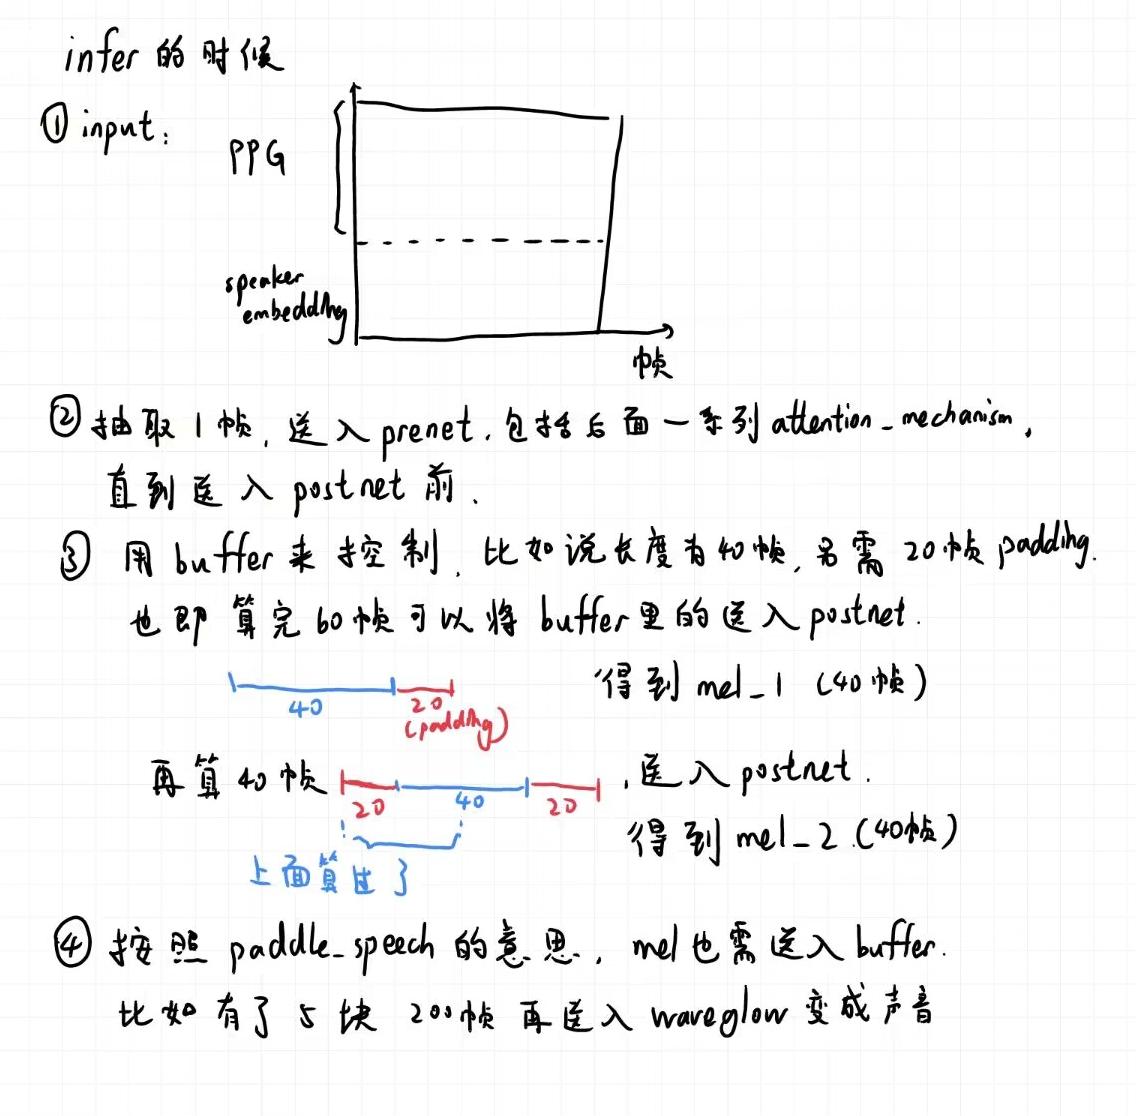 infer 的时候
① input:
PPG
speaker
embedding
帧
② 抽取1帧, 送入 prenet, 包括后面一系列 attention_mechanism,
直到送入 postnet 前.
③ 用 buffer 来控制, 比如说长度为40帧, 另需 20帧 padding.
也即算完60帧可以将 buffer里的送入 postnet.
40
20
(padding)
得到 mel_1 (40帧)
再算40帧
20
40
20
, 送入 postnet.
上面算过了
得到 mel_2 (40帧)
④ 按照 paddle_speech 的意思, mel 也需送入 buffer.
比如有了 5块 200帧 再送入 waveglow 变成声音